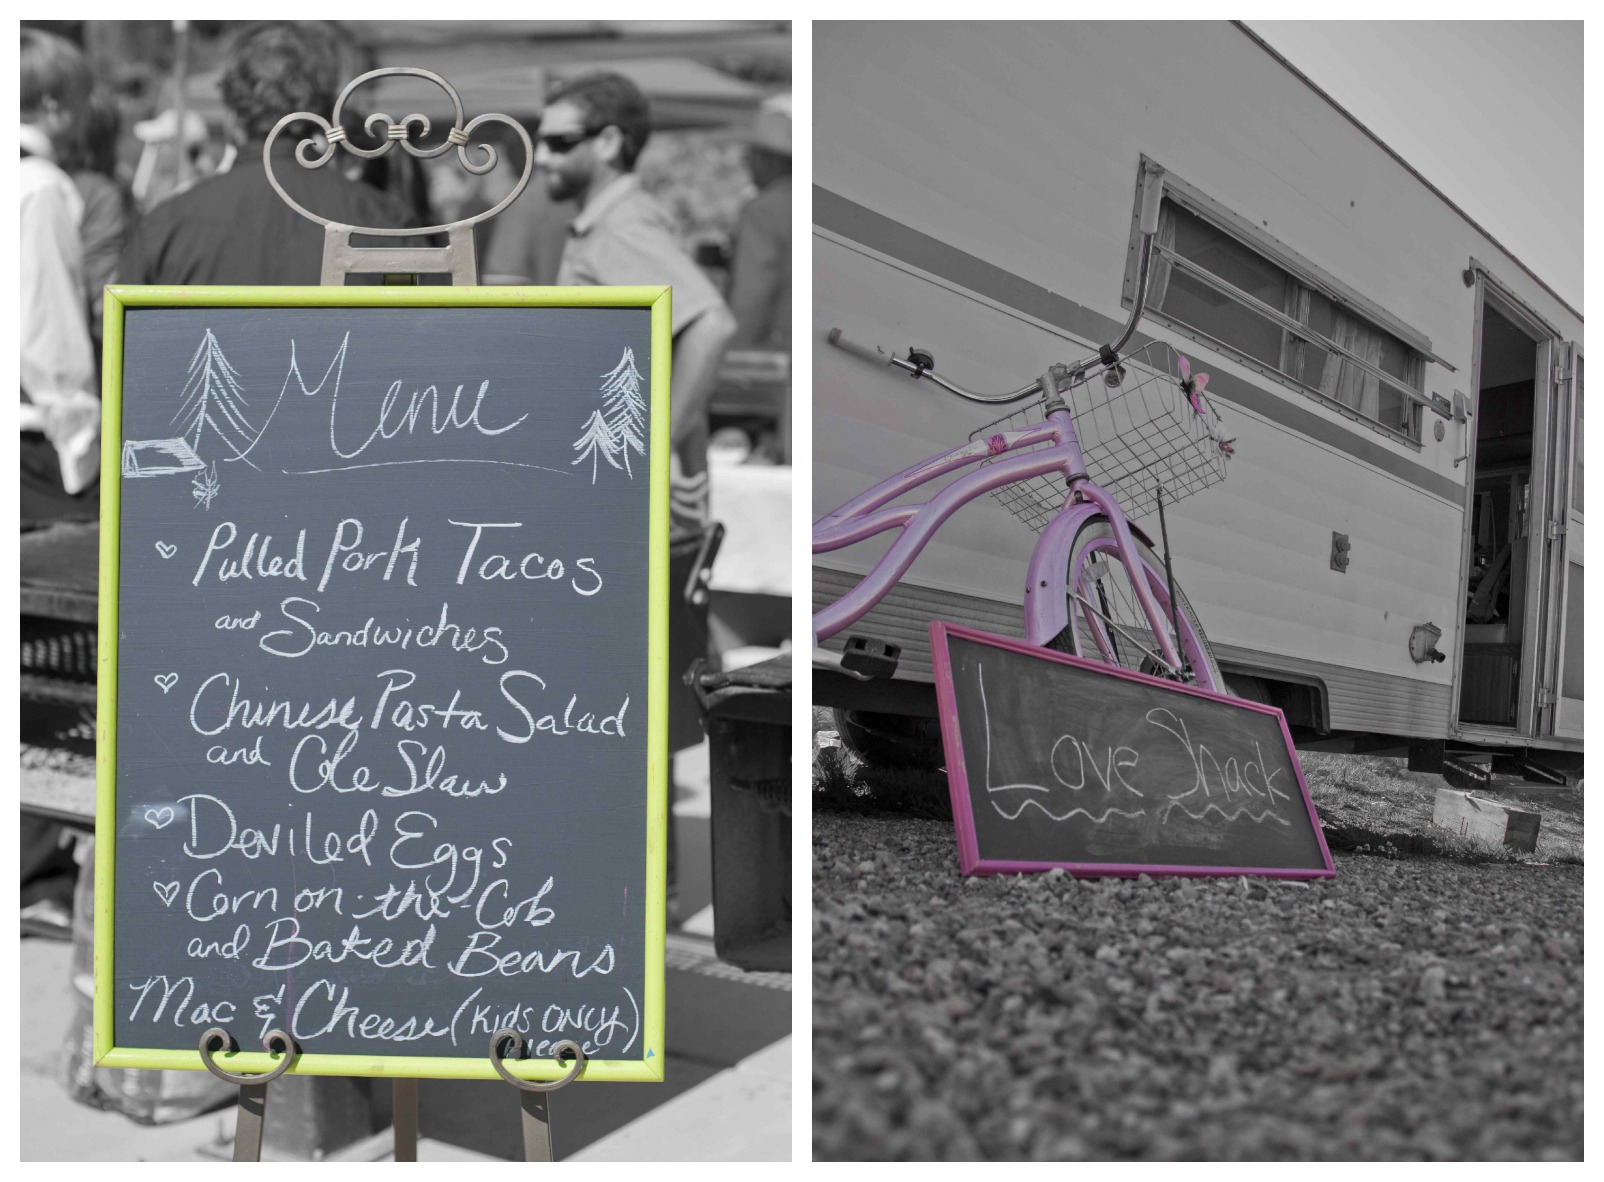 Menu
Pulled Pork Tacos
and Sandwiches
Chinese Pasta Salad
and Cole Slaw
Deviled Eggs
Corn on-the-Cob
and Baked Beans
Mac & Cheese (Kids ONLY)
please
Love Shack